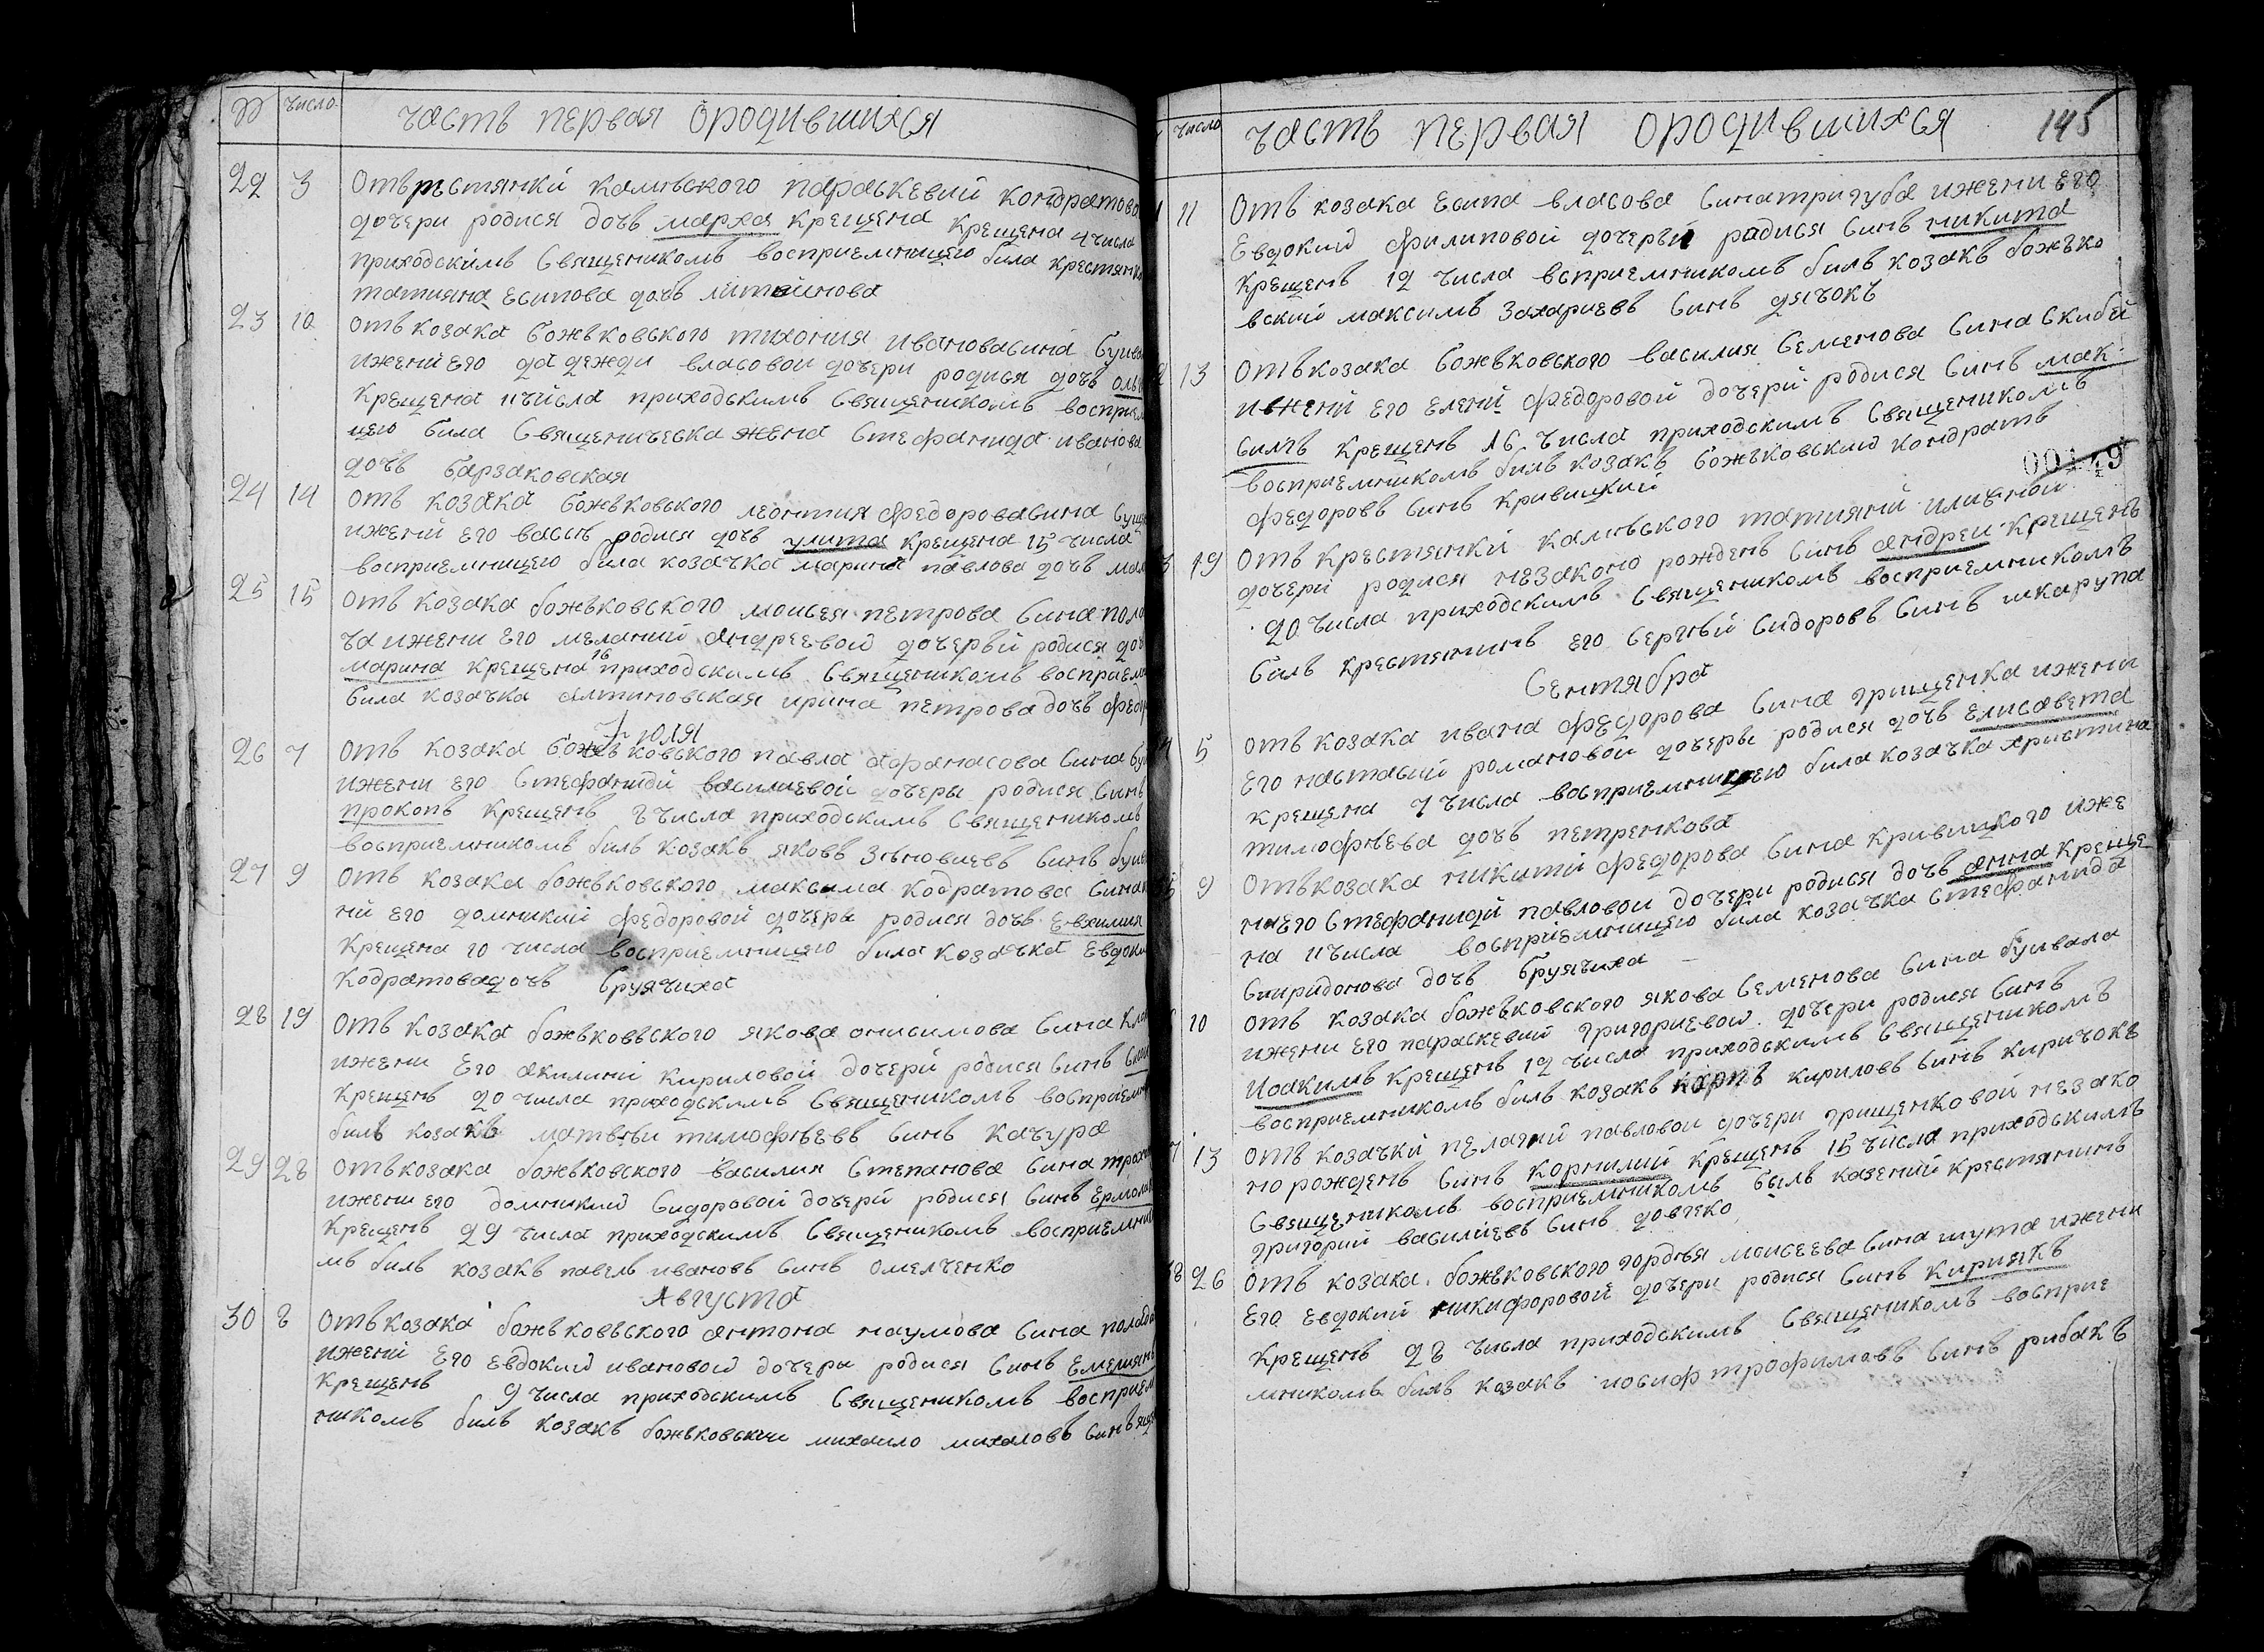 число
часть первая ородившихся
22 3 Отъ рестянки калнѣского параскевий кондратова
дочери родися дочъ марха крещена крещена 4 числа
приходскимъ священикомъ восприемницею била крестянка
татияна есипова дочъ литвинова
23 10 отъ козака божъковского тихония иванова сина
ижени его дадежди власовои дочери родися дочъ
крещена 11 числа приходскимъ священикомъ восприем
цею била священическа жена стефанида иванова
дочъ барзаковская
24 14 отъ козака божъковского леонтия федорова сина
ижений его васъ родися дочъ улита крещена 15 числа
восприемницею била козачка марина павлова дочъ
25 15 отъ козака божъковского моисея петрова сина
ча ижени его меланий андреевои дочеръй родися
марина крещена 16 приходскимъ священикомъ восприем
била козачка алтиновская ирина петрова дочъ
Июля
26 7 отъ козака божъковского павла афанасова сина
ижени его стефаниди василиевой дочеры родися синъ
прокопъ крещенъ 8 числа приходскимъ священикомъ
восприемникомъ билъ козакъ яковъ зѣновиевъ синъ
27 9 отъ козака божъковского максима кодратова сина
ни его домникий федоровой дочеры родися дочъ Евхилия
крещена 10 числа восприемницею била козачка евдоки
кодратова дочъ бруячиха
28 19 отъ козака божъковъского якова онисимова сина
ижени его акилини кириловой дочери родися синъ
крещенъ 20 числа приходскимъ священикомъ восприемн
билъ козакъ матвѣи тимофѣевъ синъ качура
29 28 отъ козака божъковского василия степанова сина
ижени его домникии сидоровой дочерй родися синъ
крещенъ 29 числа приходскимъ священикомъ восприемни
мъ билъ козакъ павелъ ивановъ синъ омелченко
Августа
30 8 отъ козака божъковъского антона наумова сина
ижений его евдокии ивановои дочери родися синъ емелиянъ
крещенъ 9 числа приходскимъ священикомъ восприем
никомъ билъ козакъ божъковъкии михаило михаловъ синъ
число
часть первая ородившихся 145
11 отъ козака есипа власова сина тригуба ижени его
Евдокии филиповой дочеръй родися синъ никита
крещенъ 12 числа всприемникомъ билъ козакъ божъко
вский максимъ захариевъ синъ дячокъ
13 отъ козака божъковского василия семенова сина скибей
ижений его елений федоровой дочерй родися синъ мак
симъ крещенъ 16 числа приходскимъ священикомъ
восприемникомъ билъ козакъ божъковский кондратъ
федоровъ синъ кривицкий
00149
19 отъ крестянки калнѣвского татияний илиной
дочери родися незаконо рожденъ синъ андреи крещенъ
20 числа приходскимъ священикомъ восприемникомъ
билъ крестянинъ его сергѣй сидоровъ синъ шкарупа
Сентября
5 отъ козака ивана федорова сина грищенка ижени
его настасий романовой дочеры родися дочъ елисавета
крещена 7 числа восприемницею била козачка христина
тимофѣева дочъ петренкова
9 отъ козака никити федорова сина кривицкого иже
ни его стефаниди павловои дочери родися дочъ анна креще
на 11 числа восприемницею била козачка стефанида
спиридонова дочъ бруячиха
10 отъ козака божъковского якова семенова сина бушвала
ижени его параскевий григориевои дочери родися синъ
Иоакимъ крещенъ 12 числа приходскимъ священикомъ
восприемникомъ билъ козакъ карпъ кириловъ синъ киричокъ
13 отъ козачки пелагий павловои дочери грищенковой незако
но рожденъ синъ корнилий крещенъ 15 числа приходскимъ
священикомъ восприемникомъ былъ казений крестянинъ
григорий василиевъ синъ довгеко
26 отъ козака божъковского гордѣя моисеева сина шута ижени
его евдокий никифоровой дочери родися синъ кириякъ
крещенъ 28 числа приходскимъ священикомъ восприе
мникомъ билъ козакъ иосифъ трофимовъ синъ рибакъ